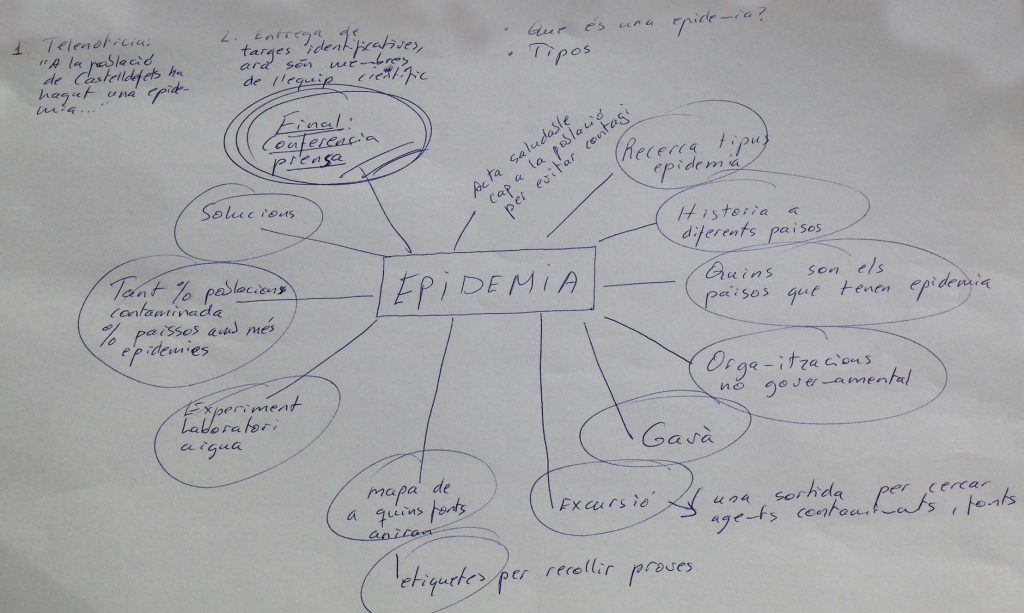 1. Telenoticia:
"A la població
de Castelldefels ha
hagut una epide-
mia..."
2. Entrega de
targes identificatives,
ara són membres
de l'equip científic
• Què és una epidemia?
• Tipos
Final:
Conferencia
prensa
Acta saludable
cap a la població
per evitar contagi
Recerca tipus
epidemia
Historia a
diferents paisos
Quins son els
paisos que tenen epidemia
Organitzacions
no governamental
Gavà
Excursió
una sortida per cercar
agents contaminants, fonts
mapa de
a quins fonts
aniran
etiquetes per recollir proves
Experiment
Laboratori
aigua
Tant % poblacions
contaminada
% païssos amb més
epidemies
Solucions
EPIDEMIA